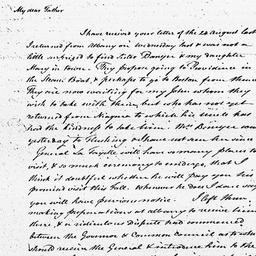 My dear Father
I have received your letter of the 24 August last
I returned from Albany on Wednesday last & was not a
little surprized to find Sister Bowyer & my daughter
Mary in town. They propose going to Providence in
the Steam Boat, & perhaps to go to Boston from thence
They are now waiting for my John whom they
wish to take with them, but who has not yet
returned from Niagara to which his uncle has
had the kindness to take him. Mrs Bowyer
yesterday to Flushing & I have not seen her since
General La Fayette will have so many places to
visit, & so much ceremony to undergo, that I
think it doubtful whether he will pay you his
promised visit this Fall. Whenever he does I dare say
you will have previous notice. I left them
making preparations at Albany to receive him
there, & a ridiculous dispute had commenced
between the Governor & Common Council as to who
should receive the General & introduce him to the